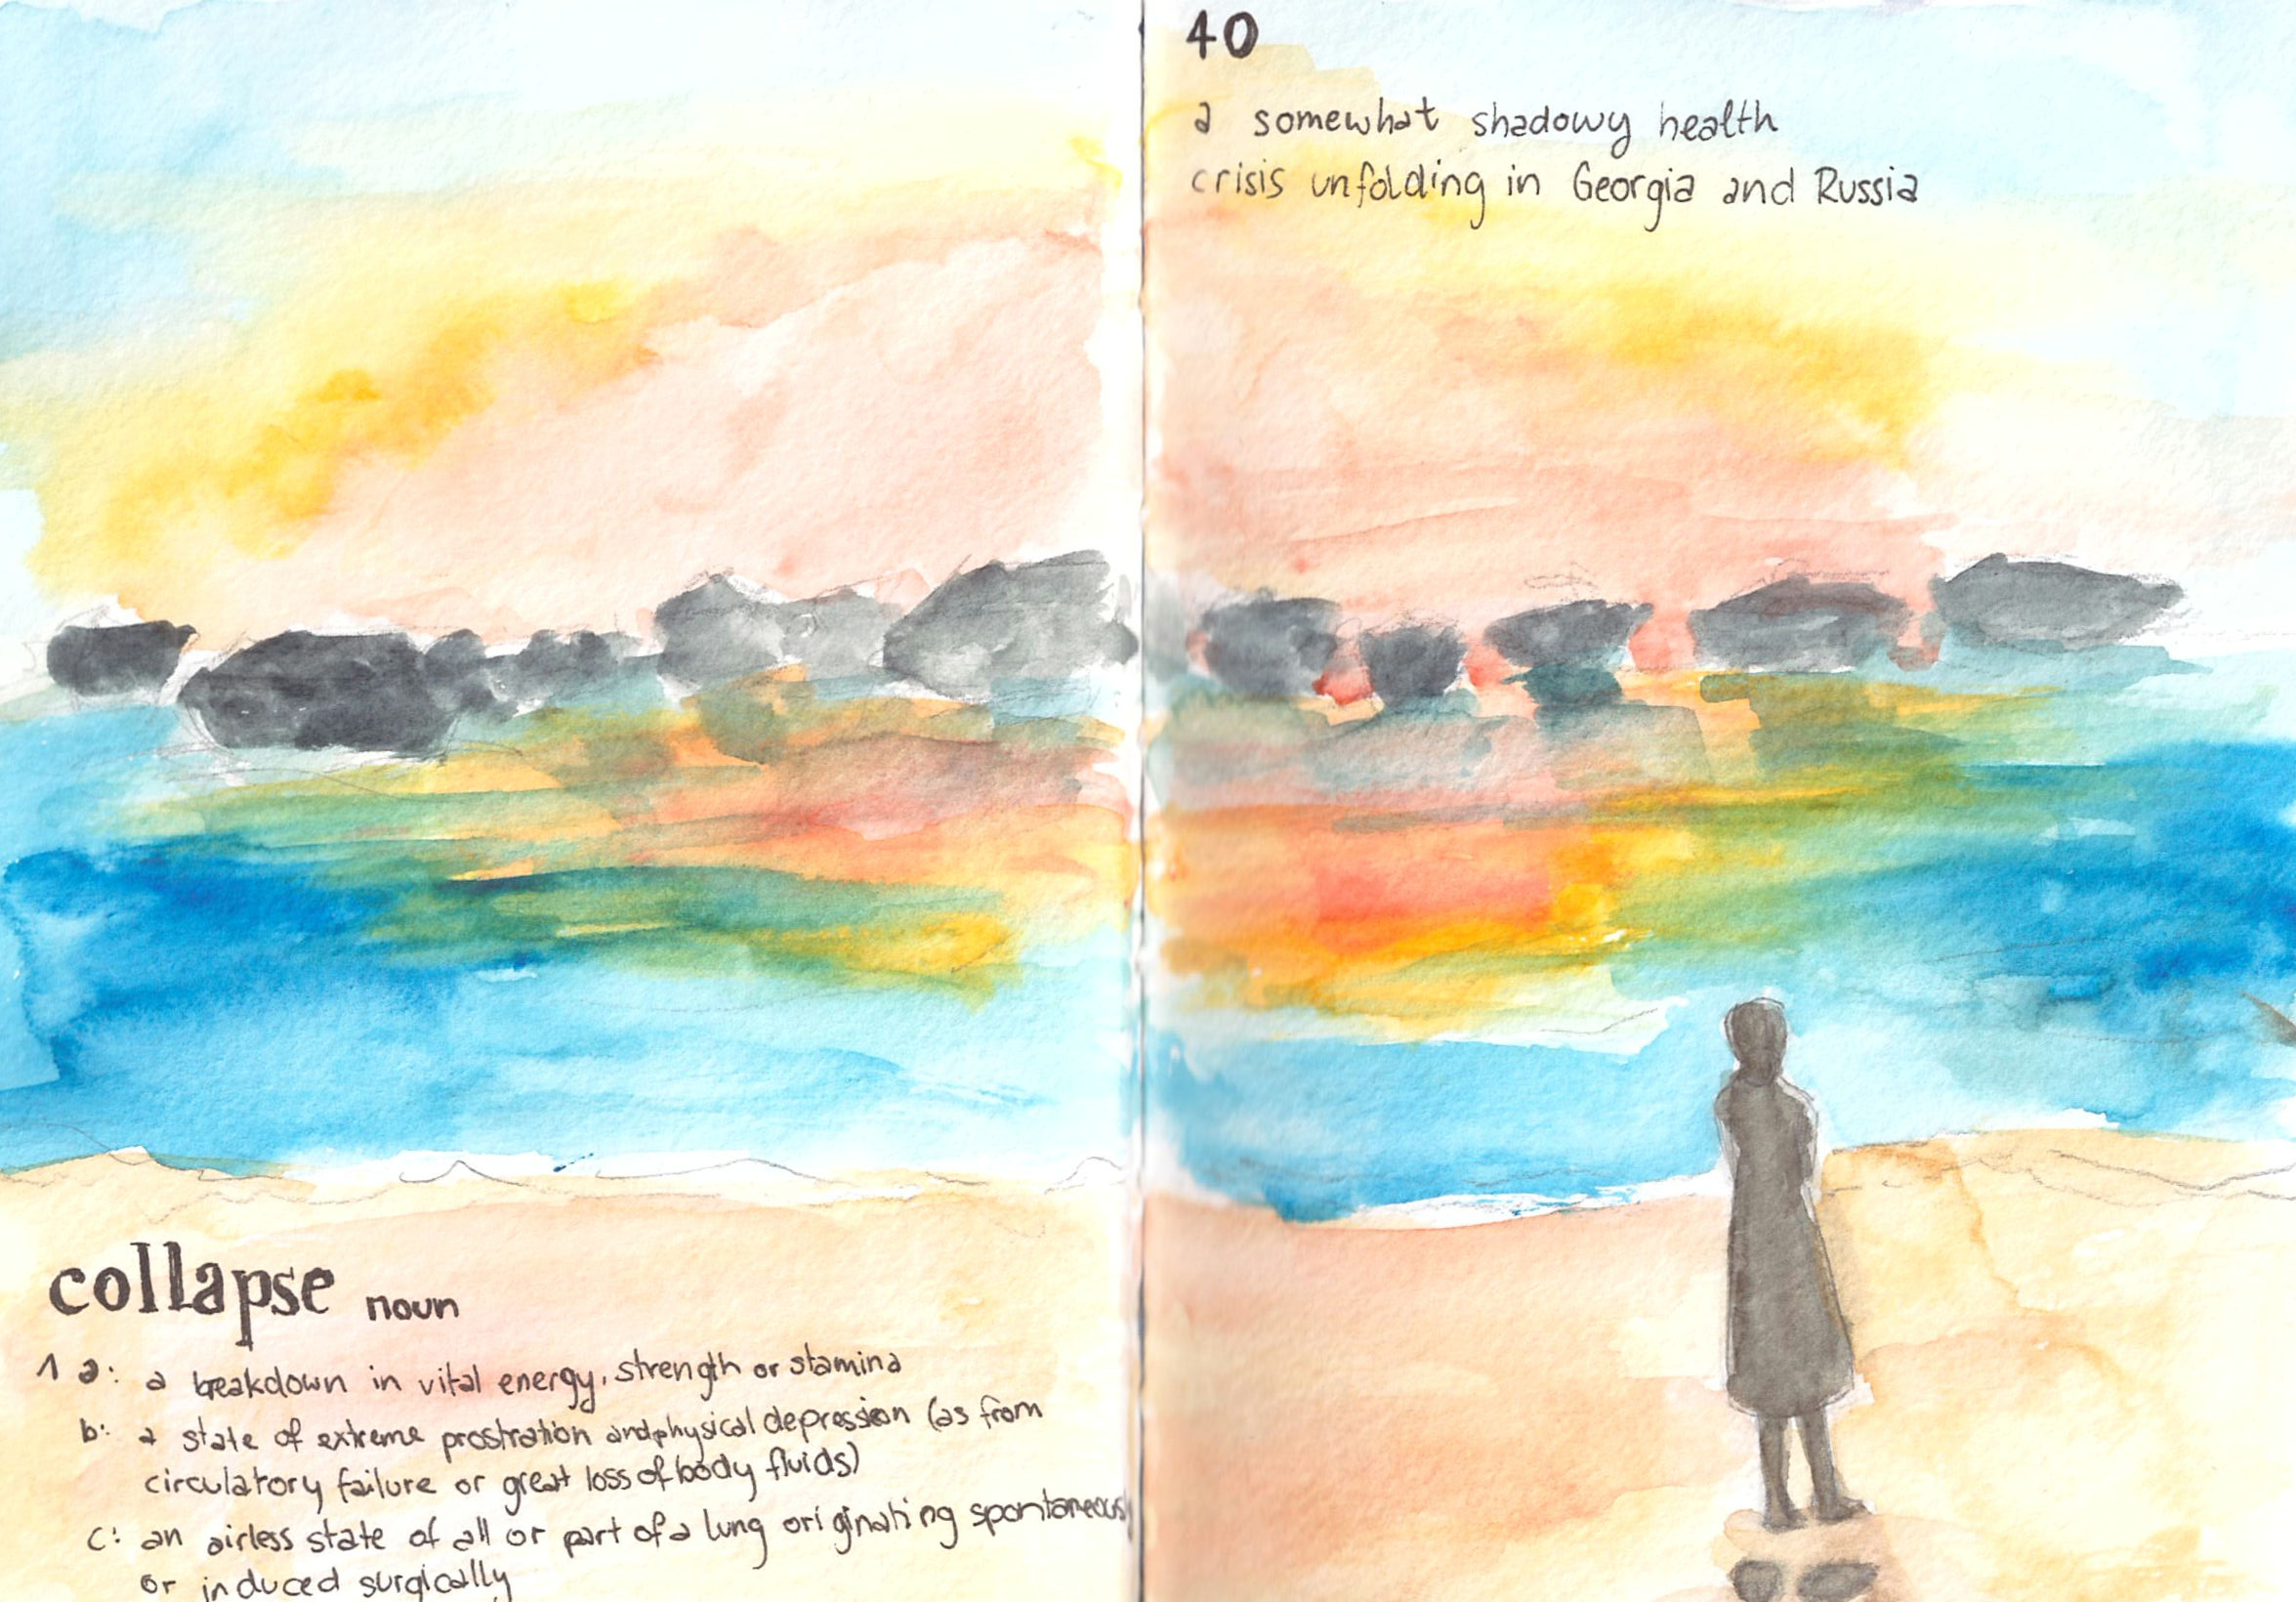 collapse noun
1 a: a breakdown in vital energy, strength or stamina
b: a state of extreme prostration and physical depression (as from
circulatory failure or great loss of body fluids)
c: an airless state of all or part of a lung originating spontaneous
or induced surgically
40
a somewhat shadowy health
crisis unfolding in Georgia and Russia